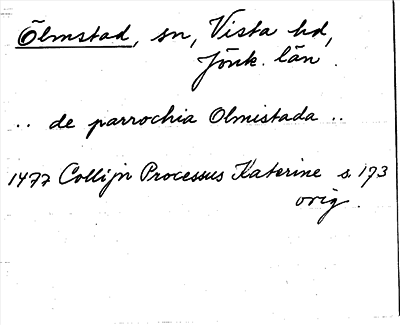 Ölmstad, sn, Vista hd,
Jönk. län.
.. de parrochia Olmistada ..
1477 Collijn Processus Katerine s. 173
orig.